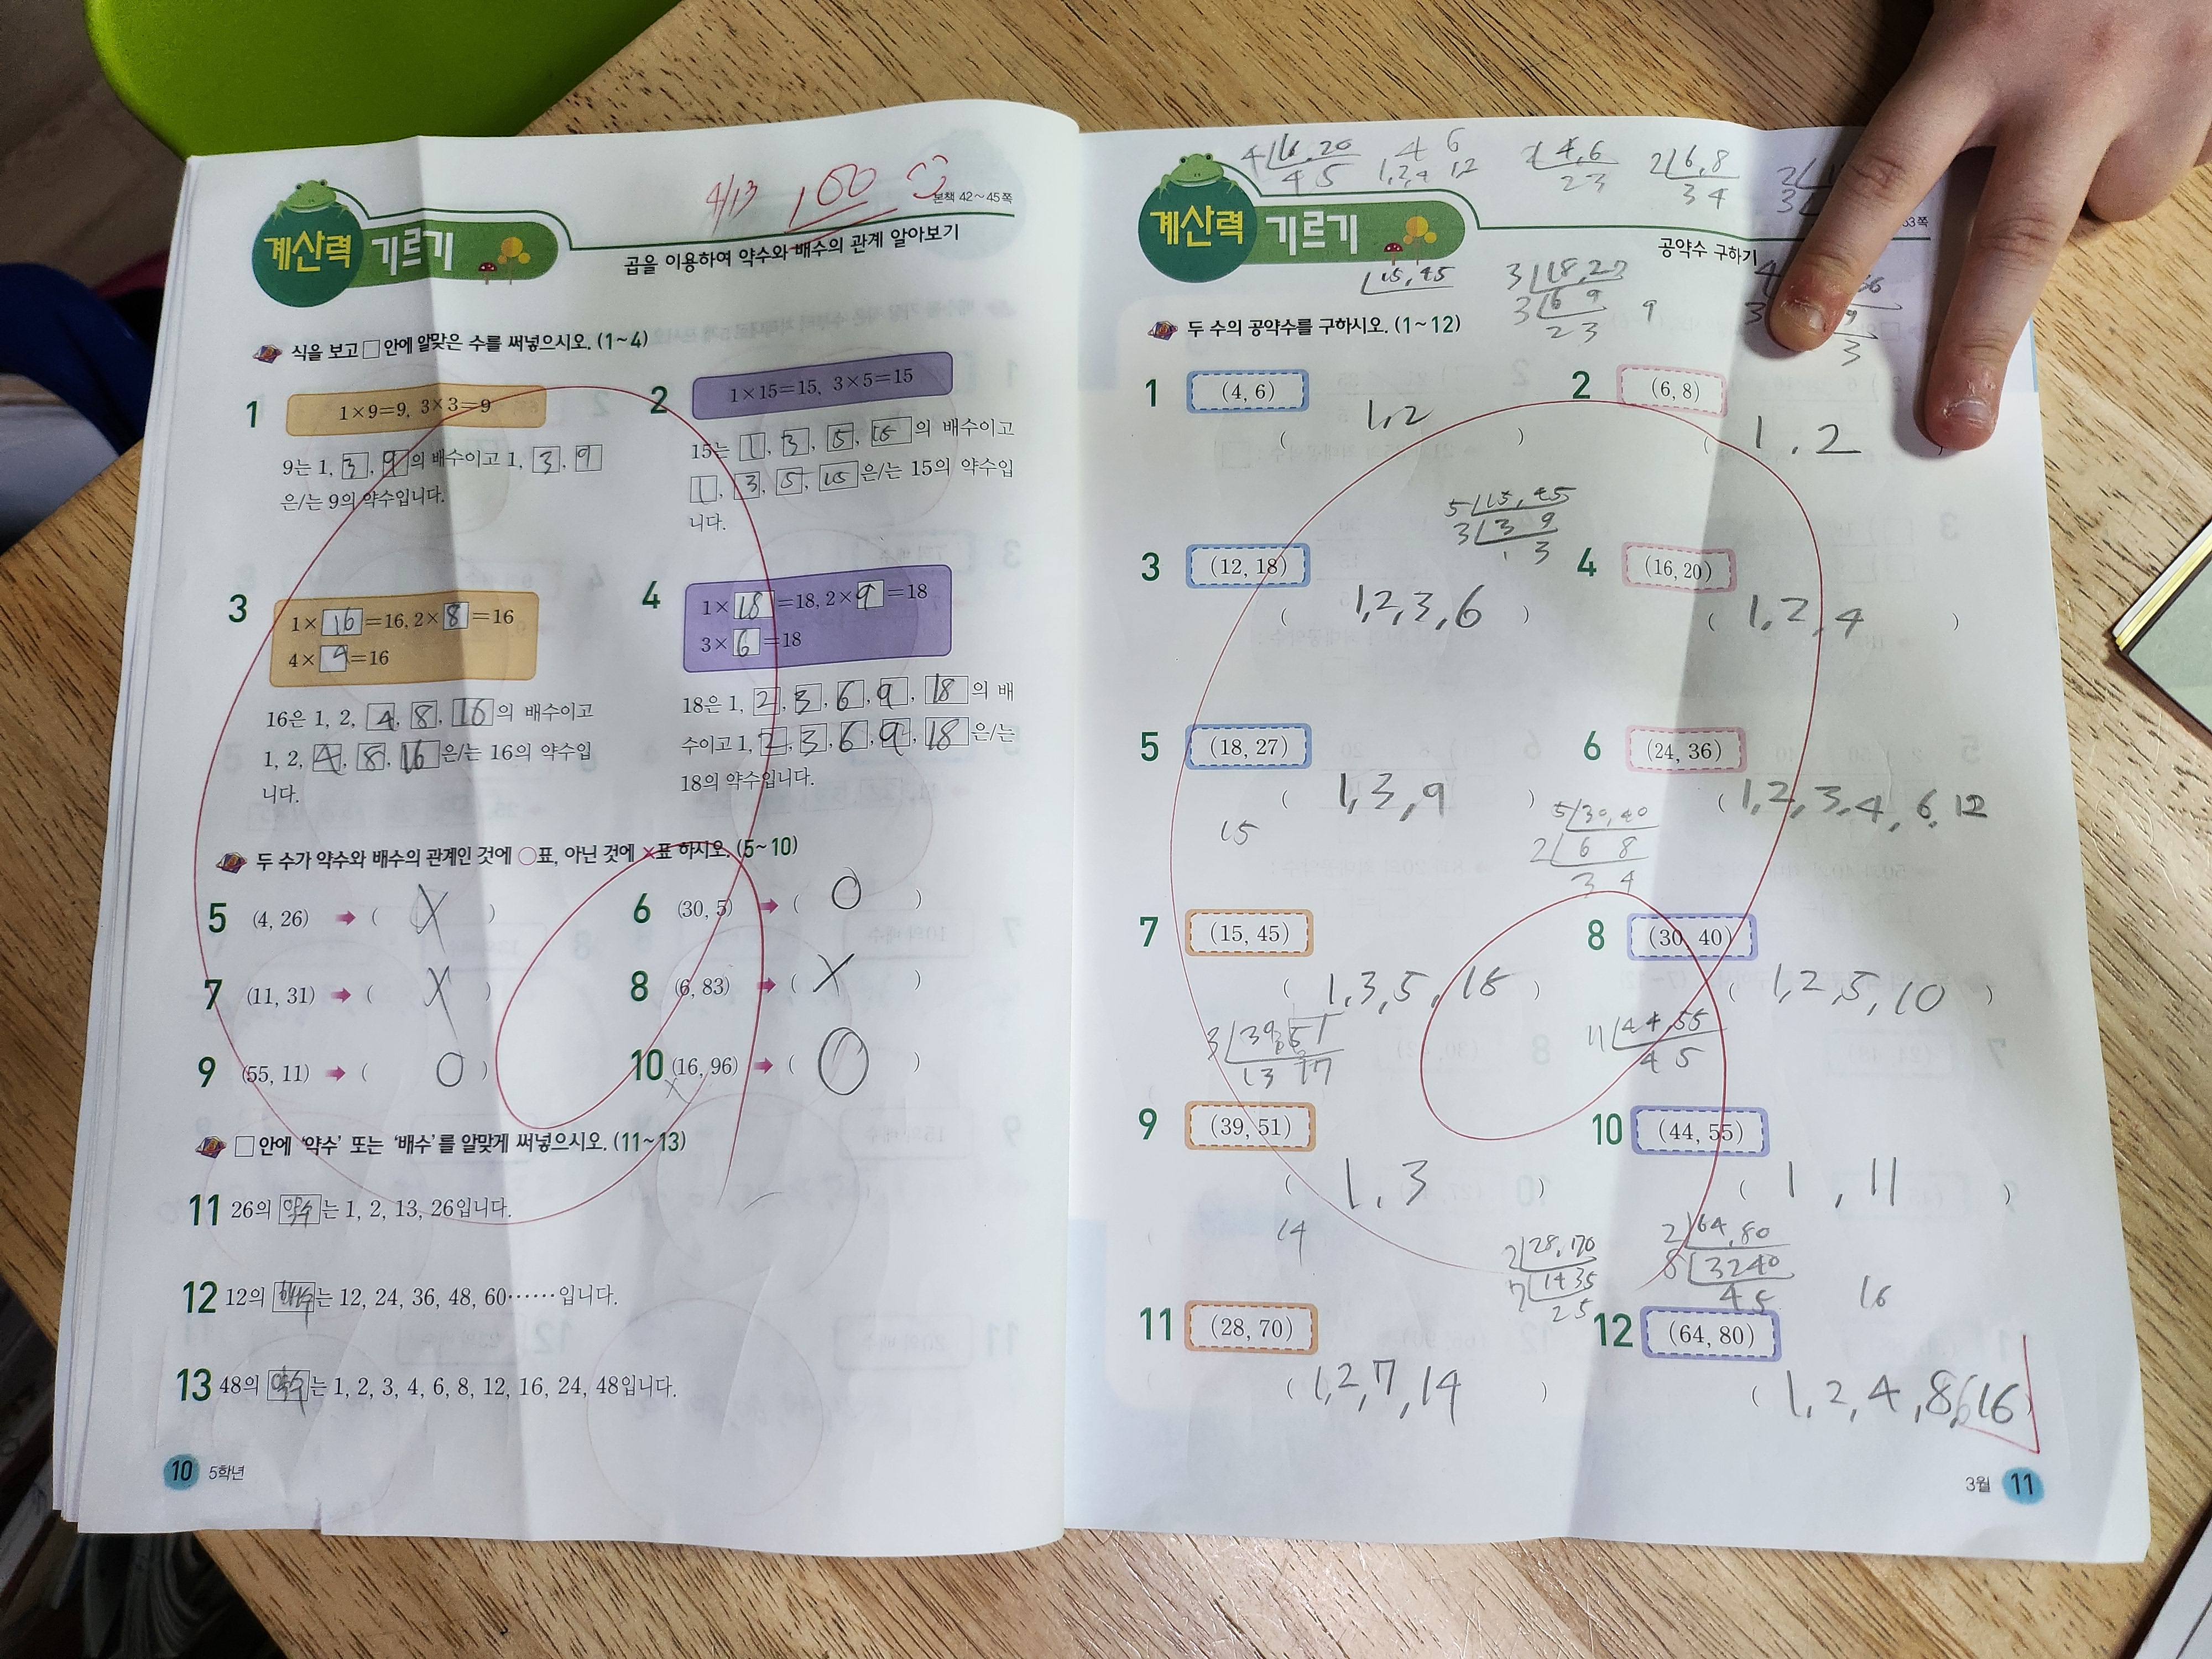 4/13 100
본책 42~45쪽
계산력 기르기
곱을 이용하여 약수와 배수의 관계 알아보기
식을 보고 □ 안에 알맞은 수를 써넣으시오. (1~4)
1
1×9=9, 3×3=9
9는 1, 3, 9의 배수이고 1, 3, 9
은/는 9의 약수입니다.
2
1×15=15, 3×5=15
15는 1, 3, 5, 15의 배수이고
1, 3, 5, 15은/는 15의 약수입
니다.
3
1×16=16, 2×8=16
4×4=16
16은 1, 2, 4, 8, 16의 배수이고
1, 2, 4, 8, 16은/는 16의 약수입
니다.
4
1×18=18, 2×9=18
3×6=18
18은 1, 2, 3, 6, 9, 18의 배
수이고 1, 2, 3, 6, 9, 18은/는
18의 약수입니다.
두 수가 약수와 배수의 관계인 것에 ○표, 아닌 것에 ×표 하시오. (5~10)
5 (4, 26) ➡ ( X )
6 (30, 5) ➡ ( O )
7 (11, 31) ➡ ( X )
8 (6, 83) ➡ ( X )
9 (55, 11) ➡ ( O )
10 (16, 96) ➡ ( O )
□ 안에 '약수' 또는 '배수'를 알맞게 써넣으시오. (11~13)
11 26의 약수는 1, 2, 13, 26입니다.
12 12의 배수는 12, 24, 36, 48, 60……입니다.
13 48의 약수는 1, 2, 3, 4, 6, 8, 12, 16, 24, 48입니다.
10 5학년
4 16, 20
4 5
4 6
1,2,4 12
2 4, 6
2 3
2 6, 8
3 4
53쪽
계산력 기르기
공약수 구하기
15, 45
3 18, 27
3 6 9
2 3
9
두 수의 공약수를 구하시오. (1~12)
1 (4, 6)
( 1, 2 )
2 (6, 8)
( 1, 2 )
5 15, 45
3 3 9
1 3
3 (12, 18)
( 1, 2, 3, 6 )
4 (16, 20)
( 1, 2, 4 )
5 (18, 27)
( 1, 3, 9 )
6 (24, 36)
( 1, 2, 3, 4, 6, 12
15
5 30, 40
2 6 8
3 4
7 (15, 45)
( 1, 3, 5, 15 )
8 (30, 40)
( 1, 2, 5, 10 )
3 39, 51
13 17
11 44, 55
4 5
9 (39, 51)
( 1, 3 )
10 (44, 55)
( 1, 11 )
14
2 28, 70
7 14 35
2 5
2 64, 80
8 32 40
4 5
16
11 (28, 70)
( 1, 2, 7, 14 )
12 (64, 80)
( 1, 2, 4, 8, 16 )
3월 11